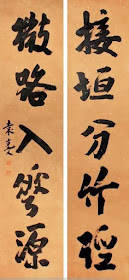 接垣分竹徑
微路入源
袁克文